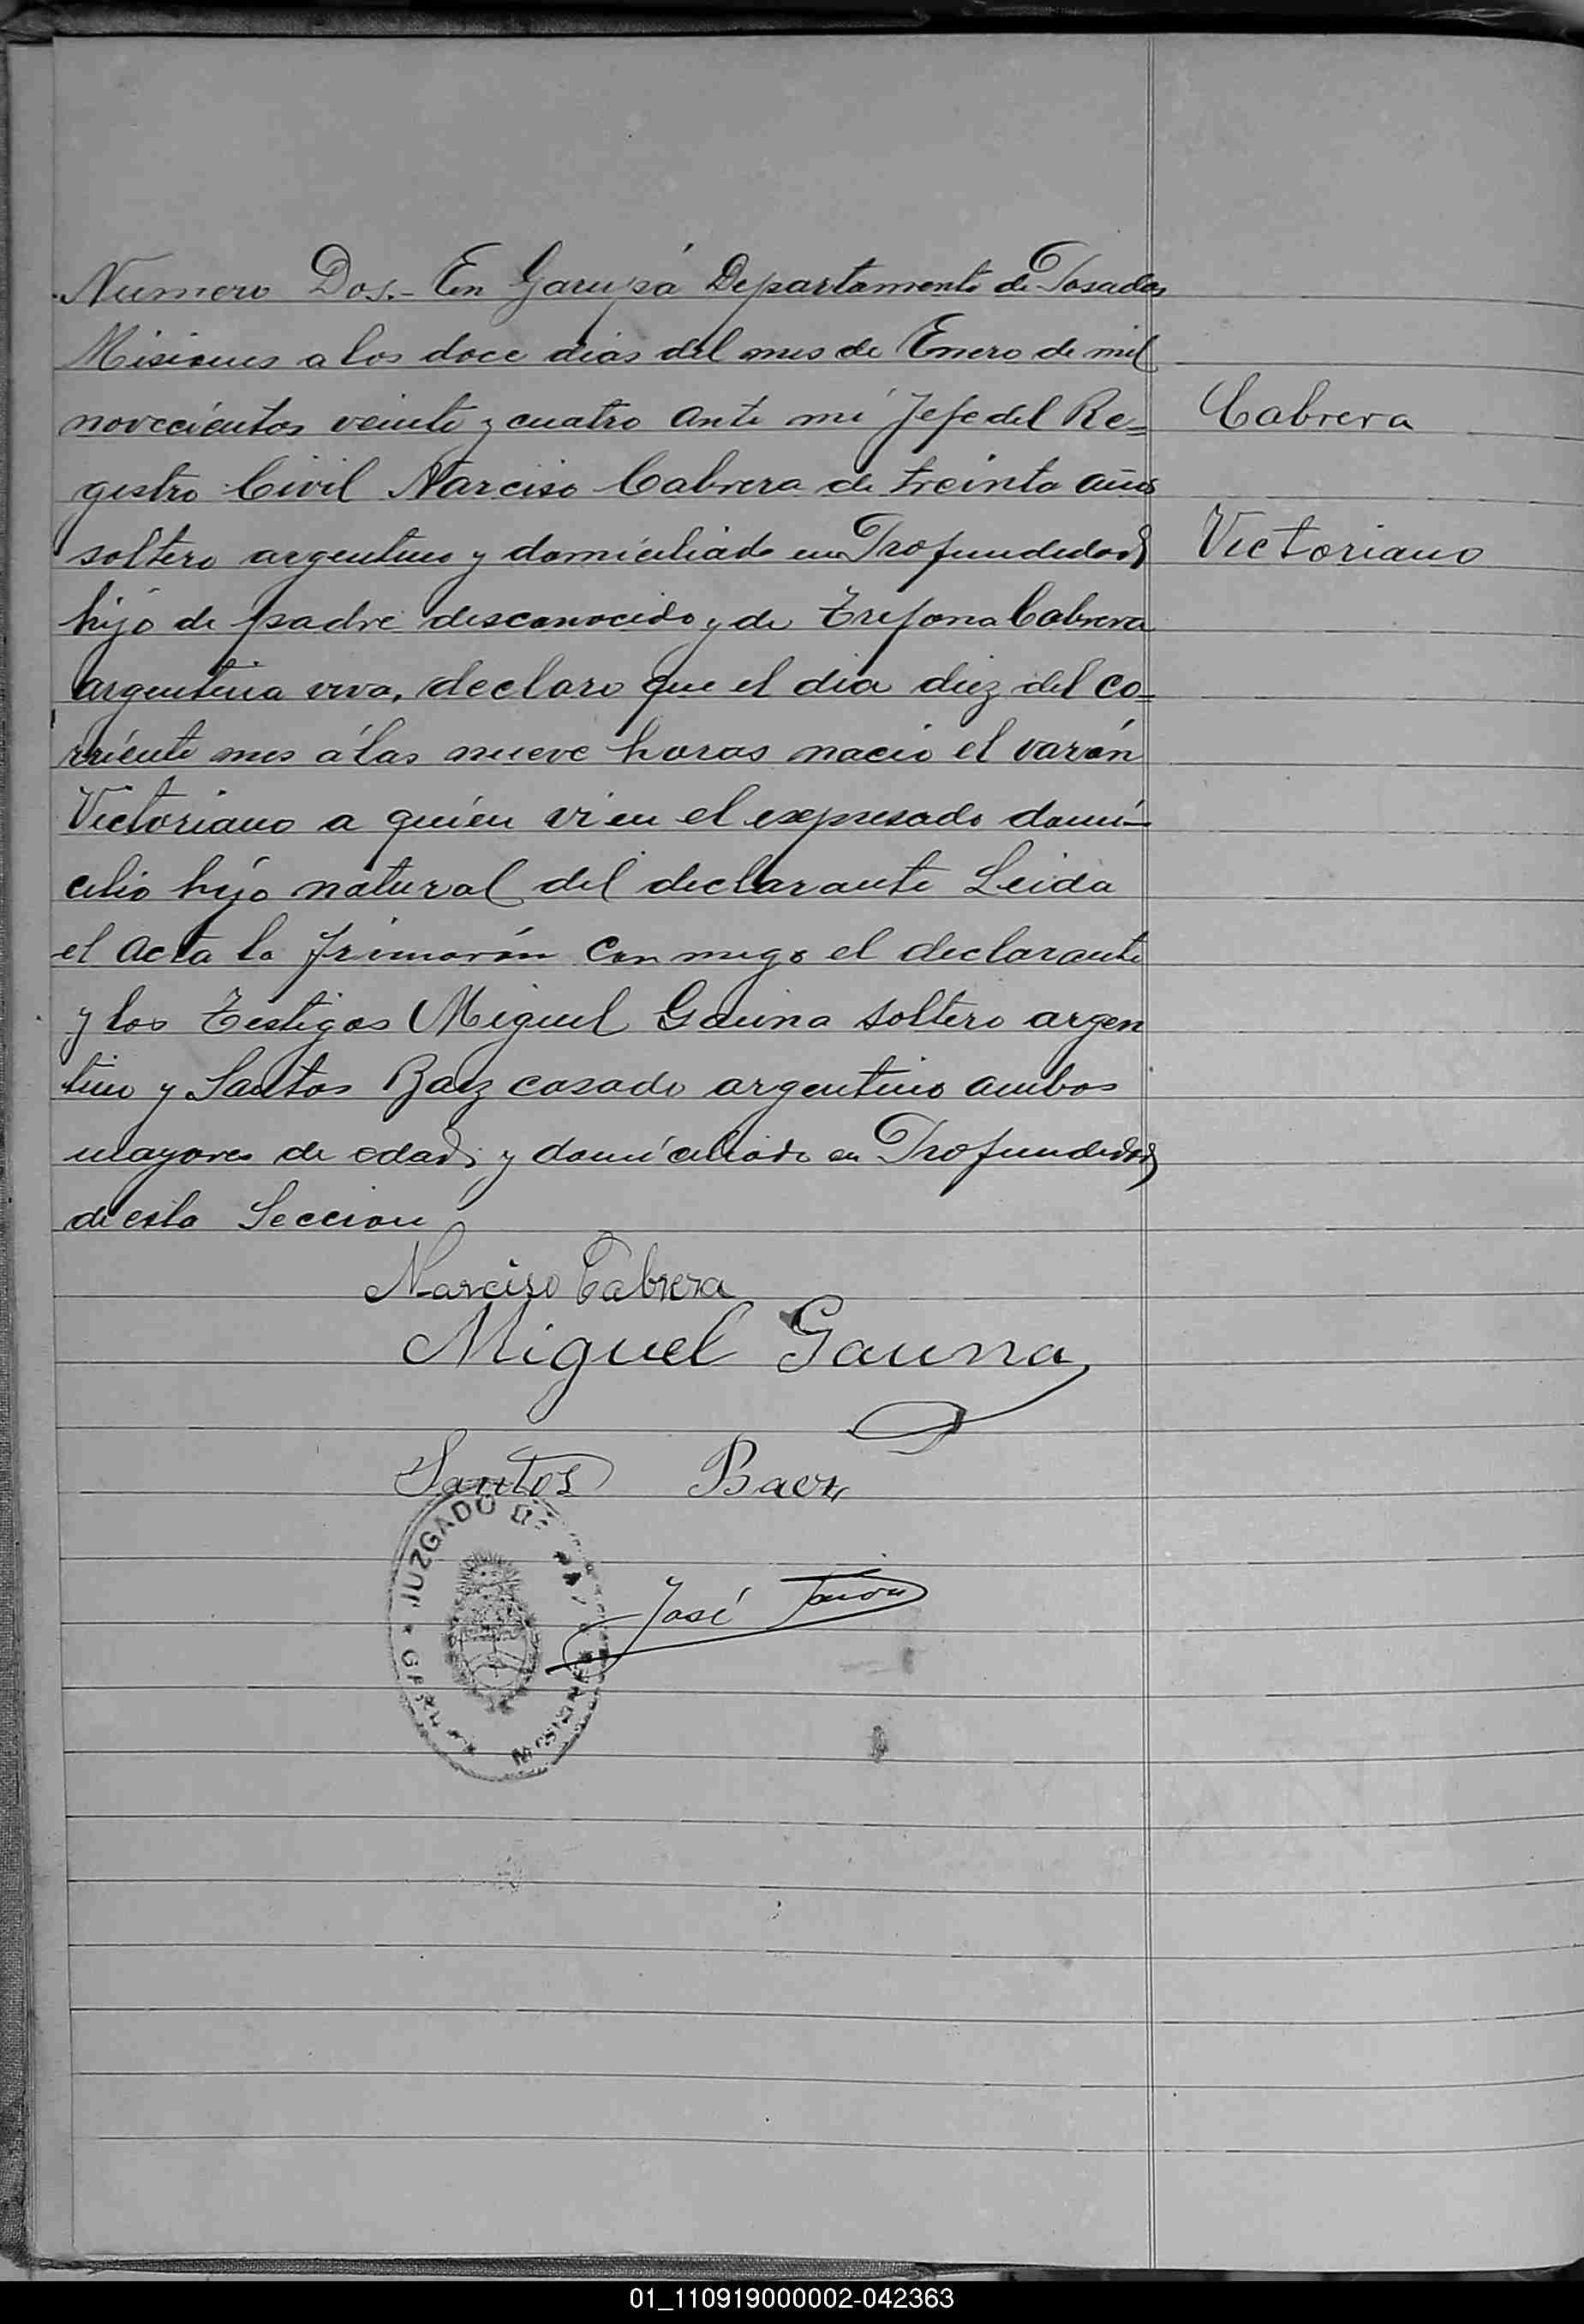 Numero Dos.- En Garupá Departamento de Posadas
Misiones a los doce dias del mes de Enero de mil
novecientos veinte y cuatro ante mi Jefe del Re=
gistro Civil Narciso Cabrera de treinta años
soltero argentino y domiciliado en Profundidad
hijo de padre desconocido y de Trefona Cabrera
argentina viva, declaro que el dia diez del co=
rriente mes á las nueve horas nacio el varón
Victoriano a quien vi en el expresado domi-
cilio hijo natural del declarante Leida
el acta la firmarón conmigo el declarante
y los testigos Miguel Gauna soltero argen
tino y Santos Baez casado argentino ambos
mayores de edad y domiciliado en Profundidad
de esta Seccion
Cabrera
Victoriano
Narciso Cabrera
Miguel Gauna
Santos Baez
JUZGADO DE PAZ
GARUPA
MISIONES
José
01_110919000002-042363